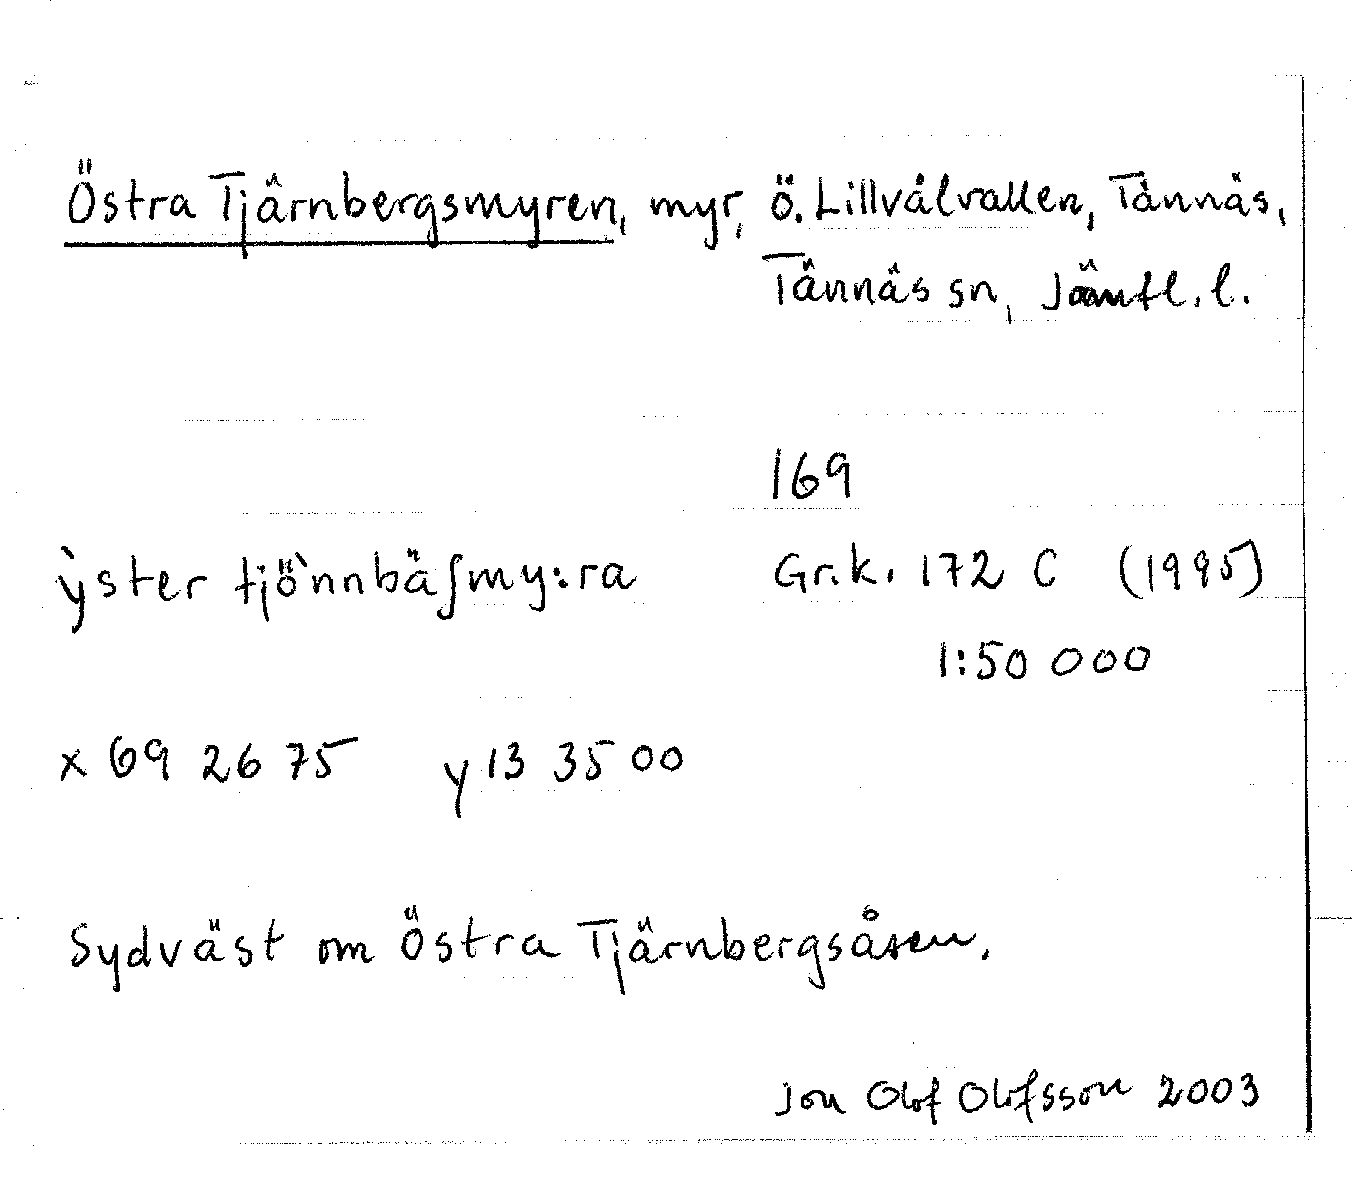 Östra Tjärnbergsmyren, myr, ö. Lillvålvallen, Tännäs,
Tännäs sn, Jämtl. l.
169
ỳster tjö̀nnbäʃmy:ra Gr.k. 172 C (1995)
1:50 000
x 69 26 75 y 13 35 00
Sydväst om Östra Tjärnbergsåsen.
Jon Olof Olofsson 2003